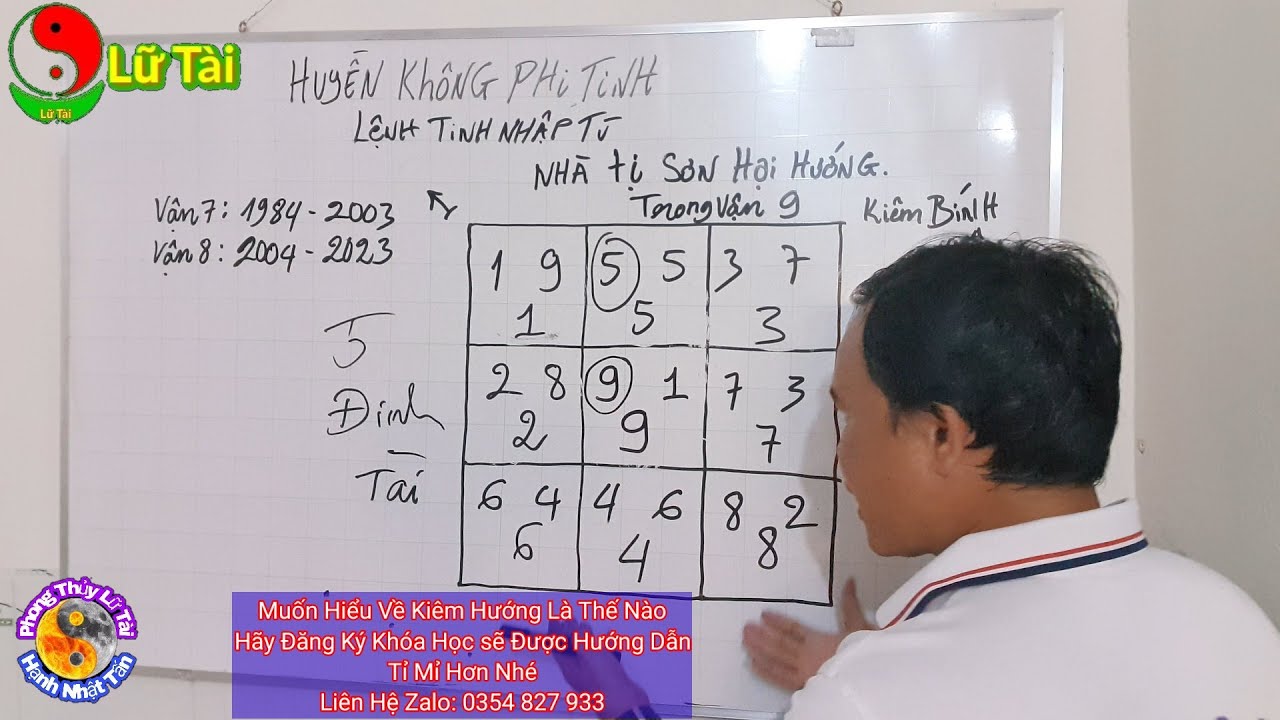 Lữ Tài
Lữ Tài
HUYỀN KHÔNG PHI TINH
LỆNH TINH NHẬP TÙ
NHÀ tị SƠN Hợi HƯỚNG.
Trong Vận 9
Kiêm BíNH
Vận 7: 1984 - 2003
Vận 8: 2004 - 2023
1 9 5 5 3 7
1 5 3
Đinh
2 8 9 1 7 3
2 9 7
Tài
6 4 4 6 8 2
6 4 8
Phong Thủy Lữ Tài
Hạnh Nhật Tân
Muốn Hiểu Về Kiêm Hướng Là Thế Nào
Hãy Đăng Ký Khóa Học sẽ Được Hướng Dẫn
Tỉ Mỉ Hơn Nhé
Liên Hệ Zalo: 0354 827 933